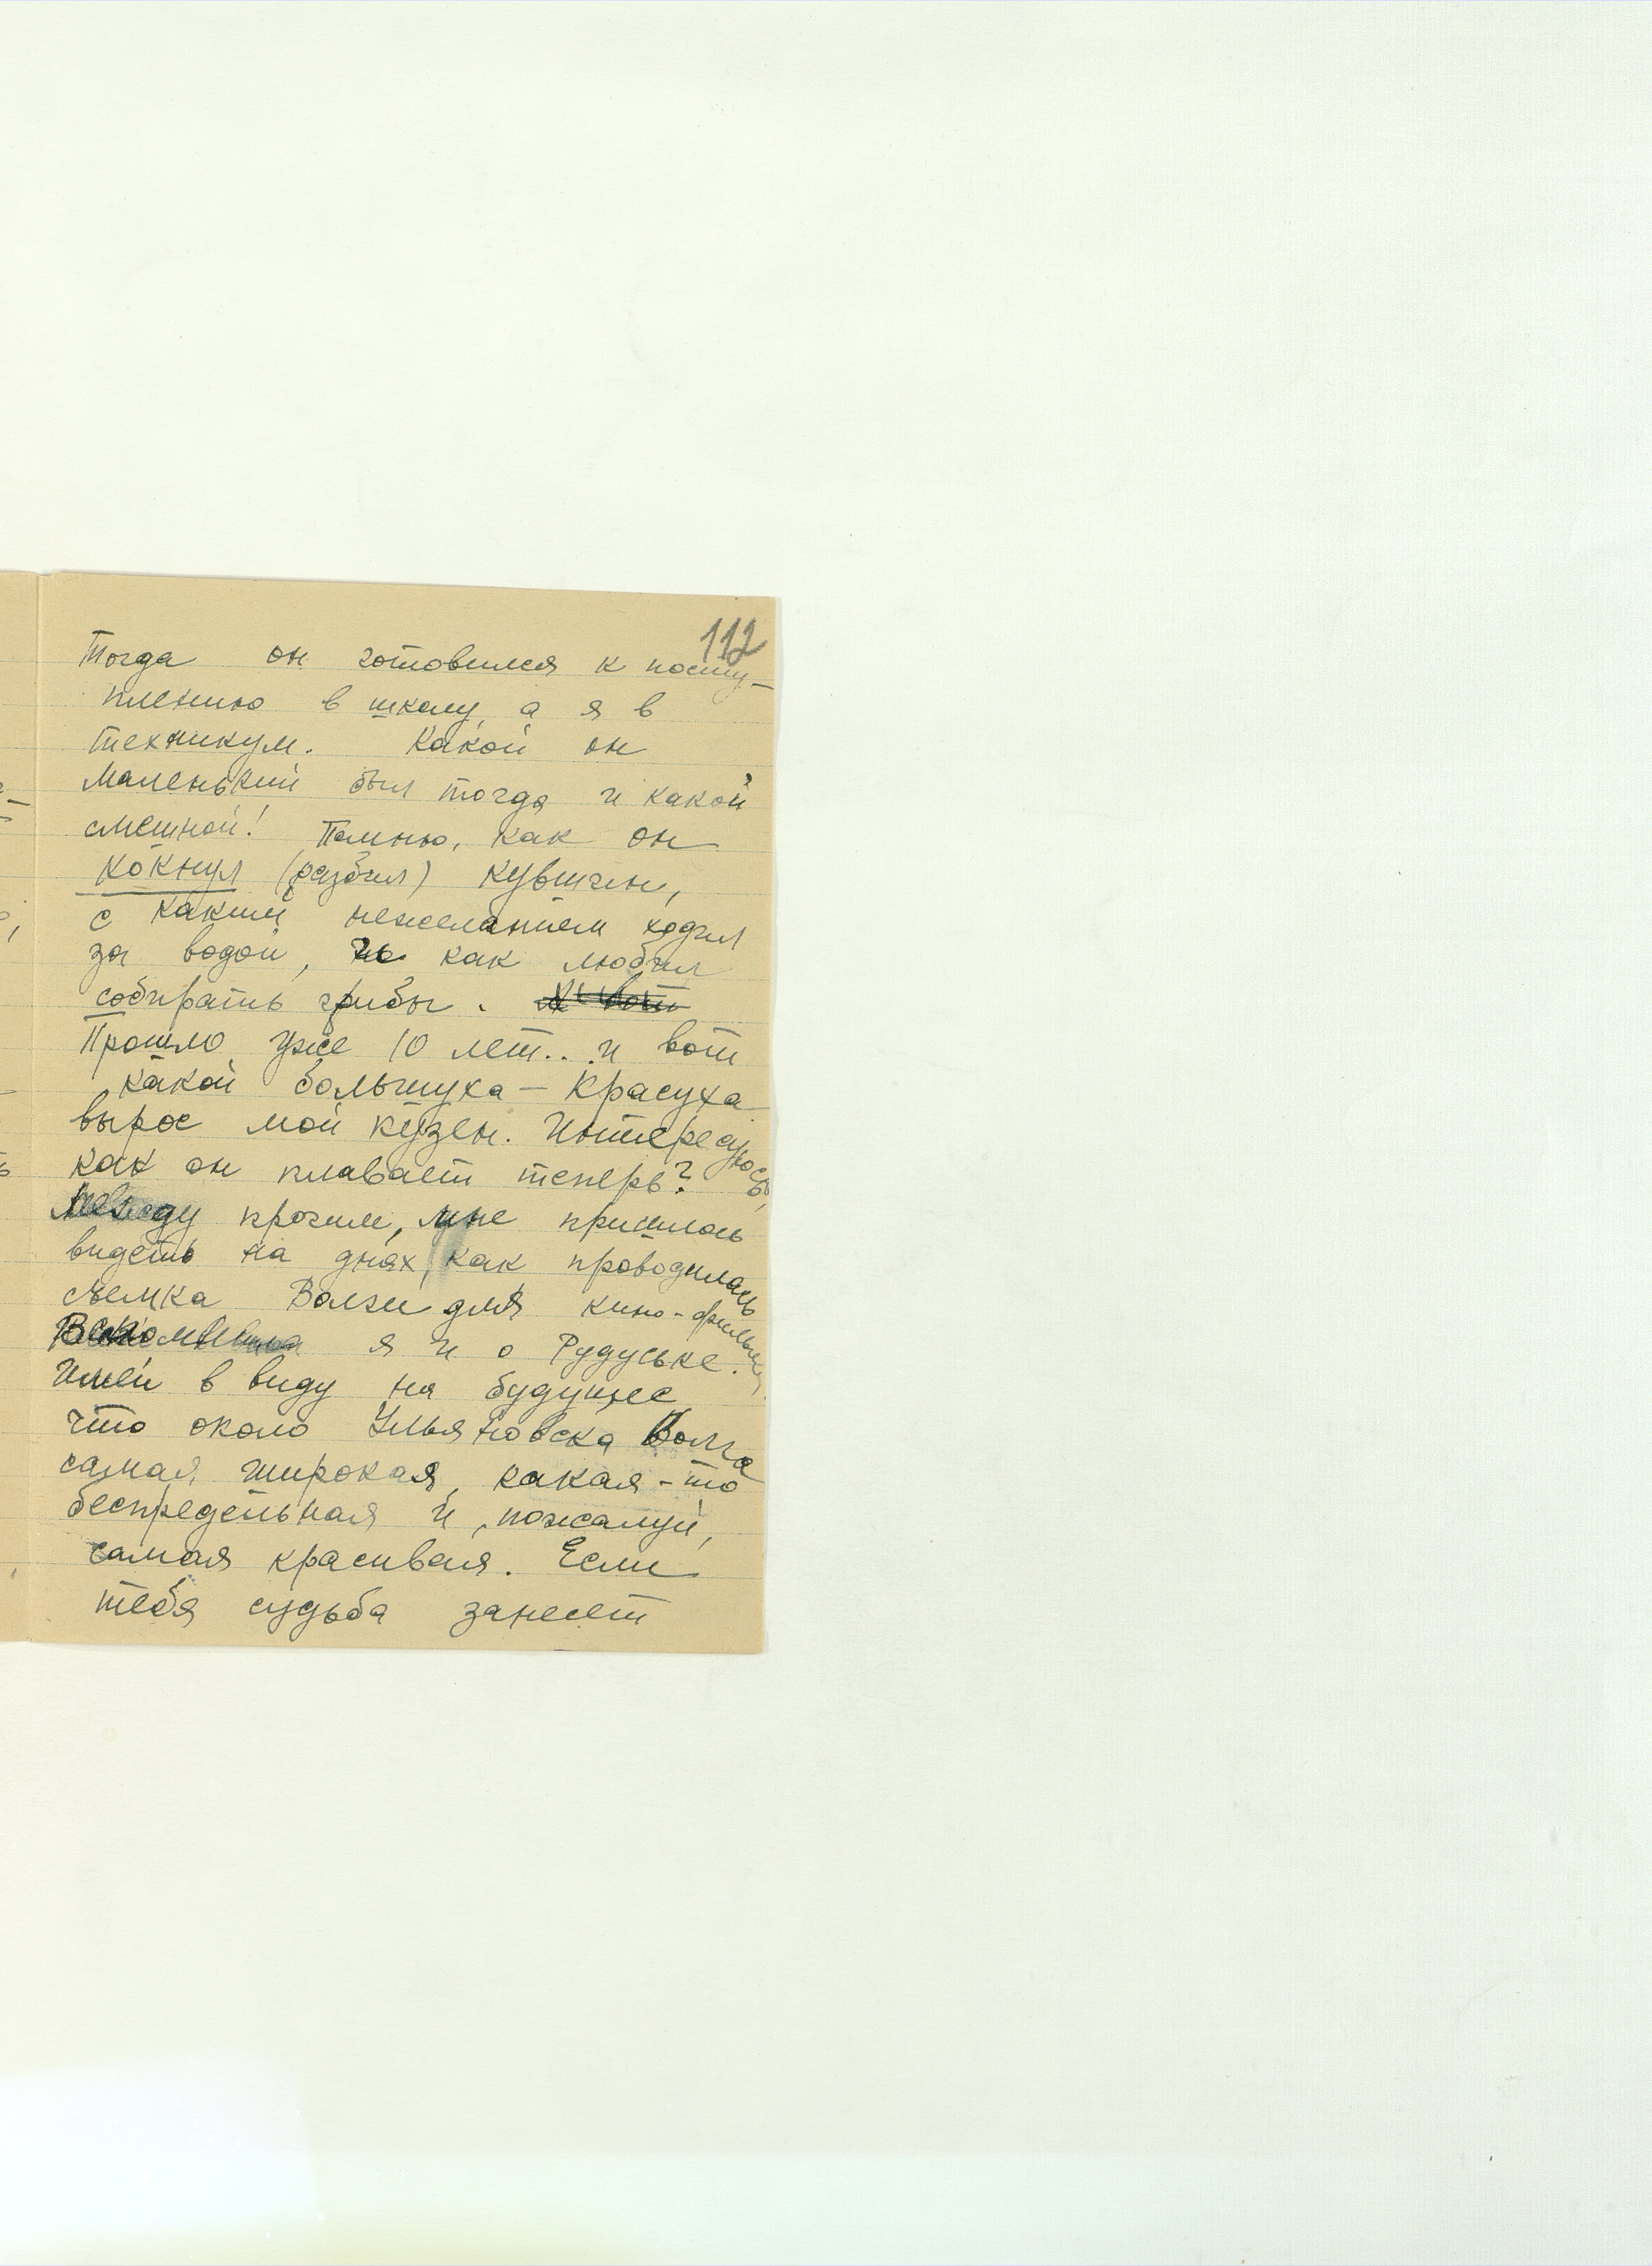 112
Тогда он готовился к посту-
плению в школу, а я в
техникум. Какой он
маленький был тогда и какой
смешной! Помню, как он
кокнул (разбил) кувшин,
с каким нежеланием ходил
за водой, но как любил
собирать грибы.
Прошло уже 10 лет.. и вот
какой большуха - красуха
вырос мой кузен. Интересуюсь,
как он плавает теперь?
Между прочим, мне пришлось
видеть на днях, как проводилась
съемка Волги для кино-фильма.
Вспомнила я и о Рудуське.
Имей в виду на будущее
что около Ульяновска Волга
самая широкая, какая-то
беспредельная и, пожалуй,
самая красивая. Если
тебя судьба занесет